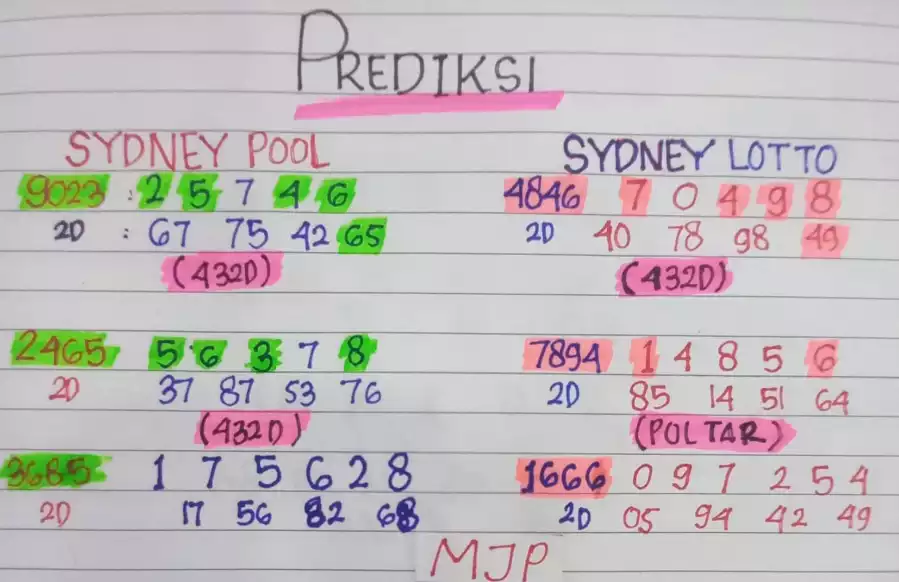 PREDIKSI
SYDNEY POOL
9023 : 2 5 7 4 6
2D : 67 75 42 65
(432D)
2465 5 6 3 7 8
2D 37 87 53 76
(432D)
3685 1 7 5 6 2 8
2D 17 56 82 68
SYDNEY LOTTO
4846 7 0 4 9 8
2D 40 78 98 49
(432D)
7894 1 4 8 5 6
2D 85 14 51 64
(POLTAR)
1666 0 9 7 2 5 4
2D 05 94 42 49
MJP